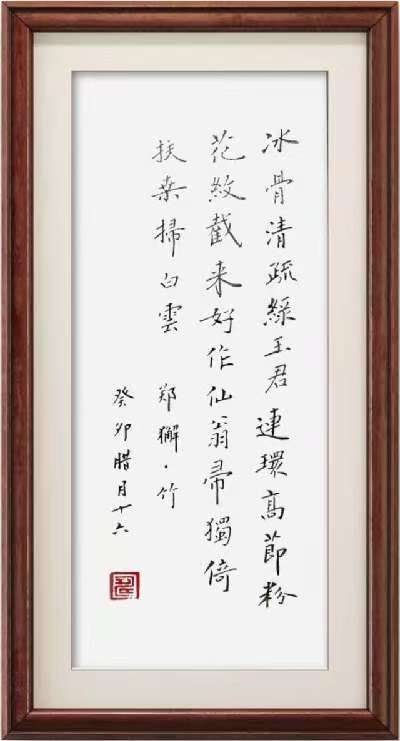 冰骨清疏綠玉君連環高節粉
花紋截来好作仙翁帚獨倚
扶桒掃白雲 郑獬·竹
癸卯腊月十六